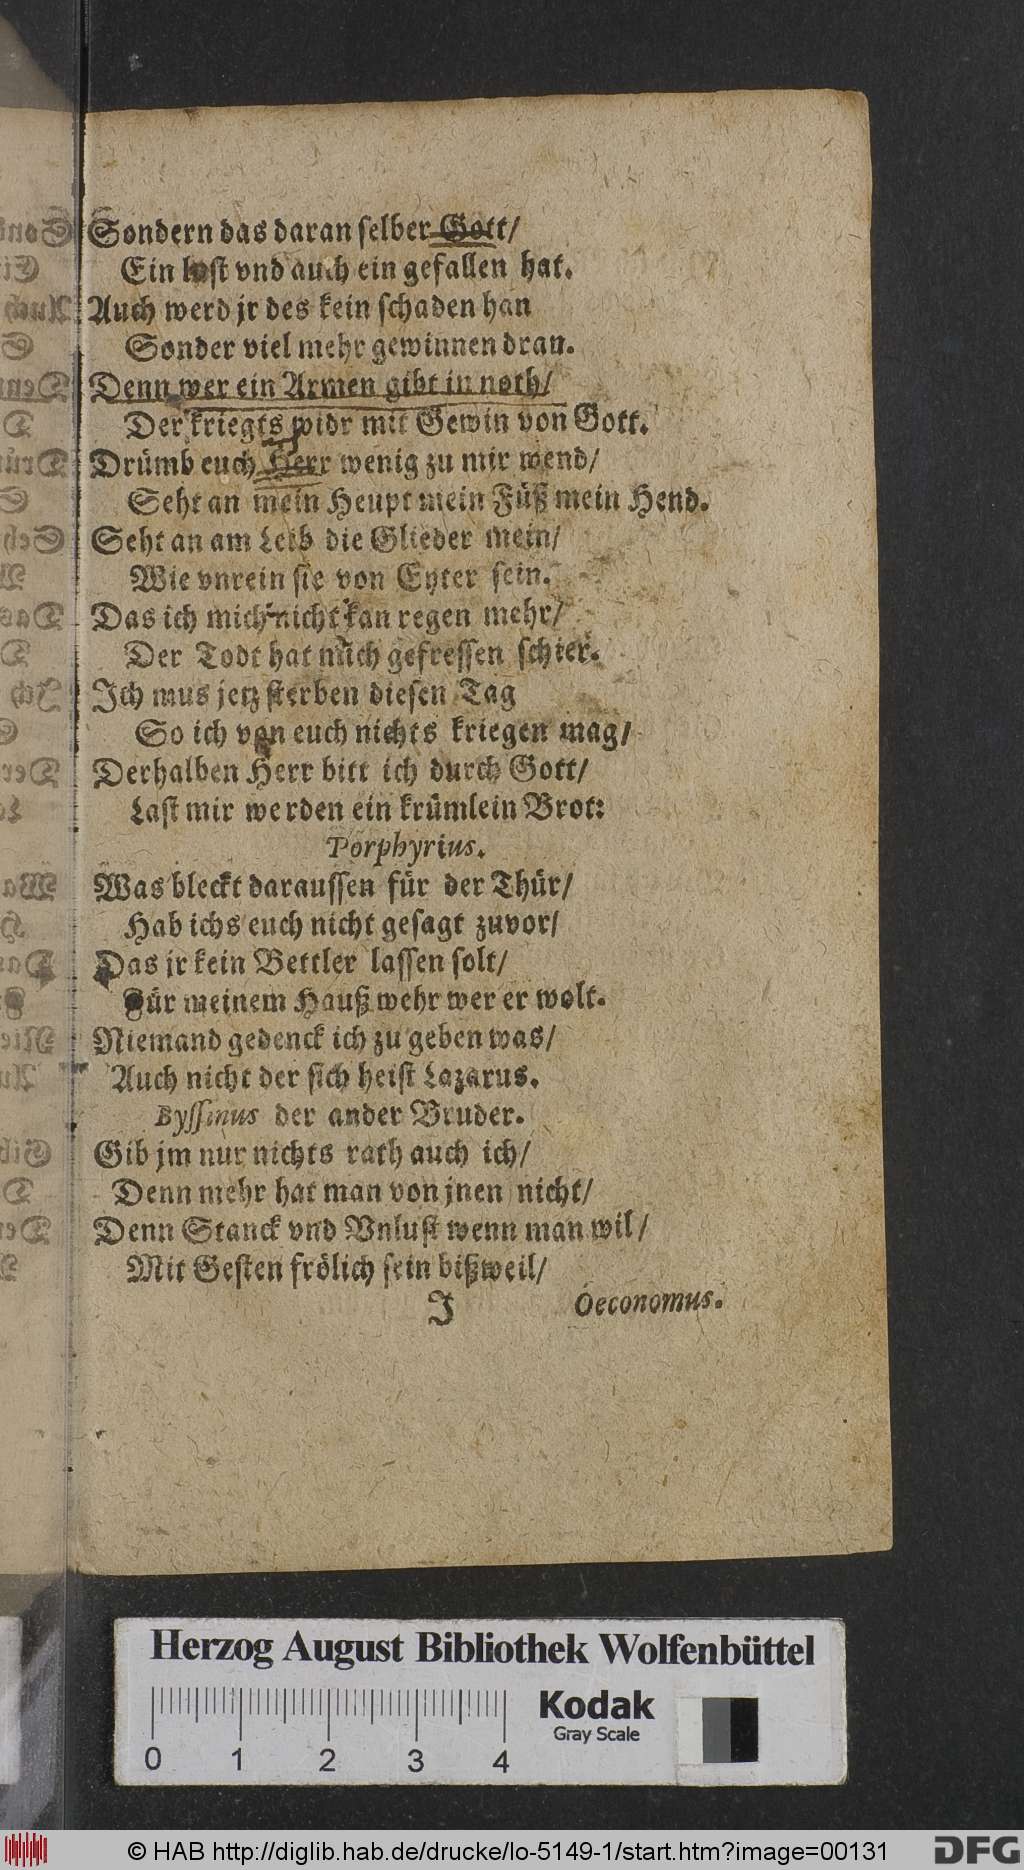 Sondern das daran selber Gott/
Ein lust vnd auch ein gefallen hat.
Auch werd jr des kein schaden han
Sonder viel mehr gewinnen dran.
Denn wer ein Armen gibt in noth/
Der kriegts widr mit Gewin von Gott.
Drümb euch Herr wenig zu mir wend/
Seht an mein Heupt mein Füß mein Hend.
Seht an am Leib die Glieder mein/
Wie vnrein sie von Eyter sein.
Das ich mich nicht kan regen mehr/
Der Todt hat mich gefressen schier.
Ich mus jetz sterben diesen Tag
So ich von euch nichts kriegen mag/
Derhalben Herr bitt ich durch Gott/
Last mir werden ein krümlein Brot:
Porphyrius.
Was bleckt daraussen für der Thür/
Hab ichs euch nicht gesagt zuvor/
Das jr kein Bettler lassen solt/
Für meinem Hauß wehr wer er wolt.
Niemand gedenck ich zu geben was/
Auch nicht der sich heist Lazarus.
Byssinus der ander Bruder.
Gib jm nur nichts rath auch ich/
Denn mehr hat man von jnen nicht/
Denn Stanck vnd Vnlust wenn man wil/
Mit Gesten frölich sein bißweil/
J Oeconomus.
Herzog August Bibliothek Wolfenbüttel
Kodak
Gray Scale
0 1 2 3 4
© HAB http://diglib.hab.de/drucke/lo-5149-1/start.htm?image=00131
DFG